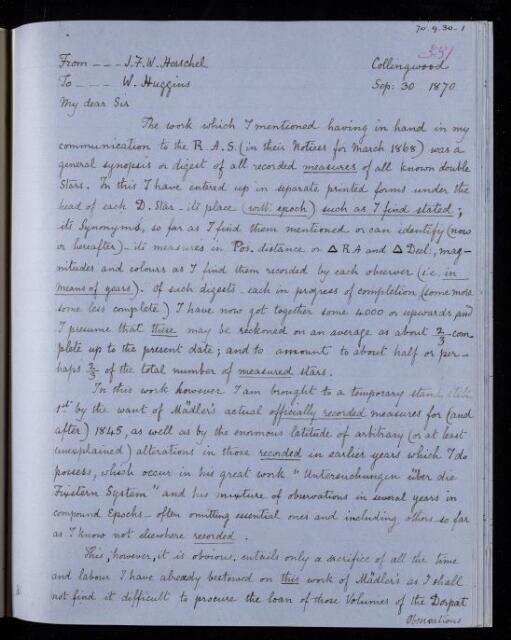 70.9.30-1
351
From --- J.F.W. Herschel Collingwood
To --- W. Huggins Sep: 30 1870
My dear Sir
The work which I mentioned having in hand in my
communication to the R.A.S. (in their Notices for March 1868) was a
general synopsis or digest of all recorded measures of all known double
Stars. In this I have entered up in separate printed forms under the
head of each D. Star - its place (with epoch) such as I find stated;
its Synonyms, so far as I find them mentioned or can identify (now
or hereafter) - its measures in Pos. distance or Δ RA and Δ Decl:, mag-
nitudes and colours as I find them recorded by each observer (i.e. in
means of years). Of such digests - each in progress of completion (some more
some less complete) I have now got together some 4000 or upwards and
I presume that these may be reckoned on an average as about 2/3 com-
plete up to the present date; and to amount to about half or per-
haps 2/3 of the total number of measured stars.
In this work however I am brought to a temporary stand still
1st by the want of Mädler's actual officially recorded measures for (and
after) 1845, as well as by the enormous latitude of arbitrary (or at least
unexplained) alterations in those recorded in earlier years which I do
possess, which occur in his great work "Untersuchungen über die
Fixstern System" and his mixture of observations in several years in
compound Epochs - often omitting essential ones and including others so far
as I know not elsewhere recorded.
This, however, it is obvious, entails only a sacrifice of all the time
and labour I have already bestowed on this work of Mädler's as I shall
not find it difficult to procure the loan of those Volumes of the Dorpat
Observations